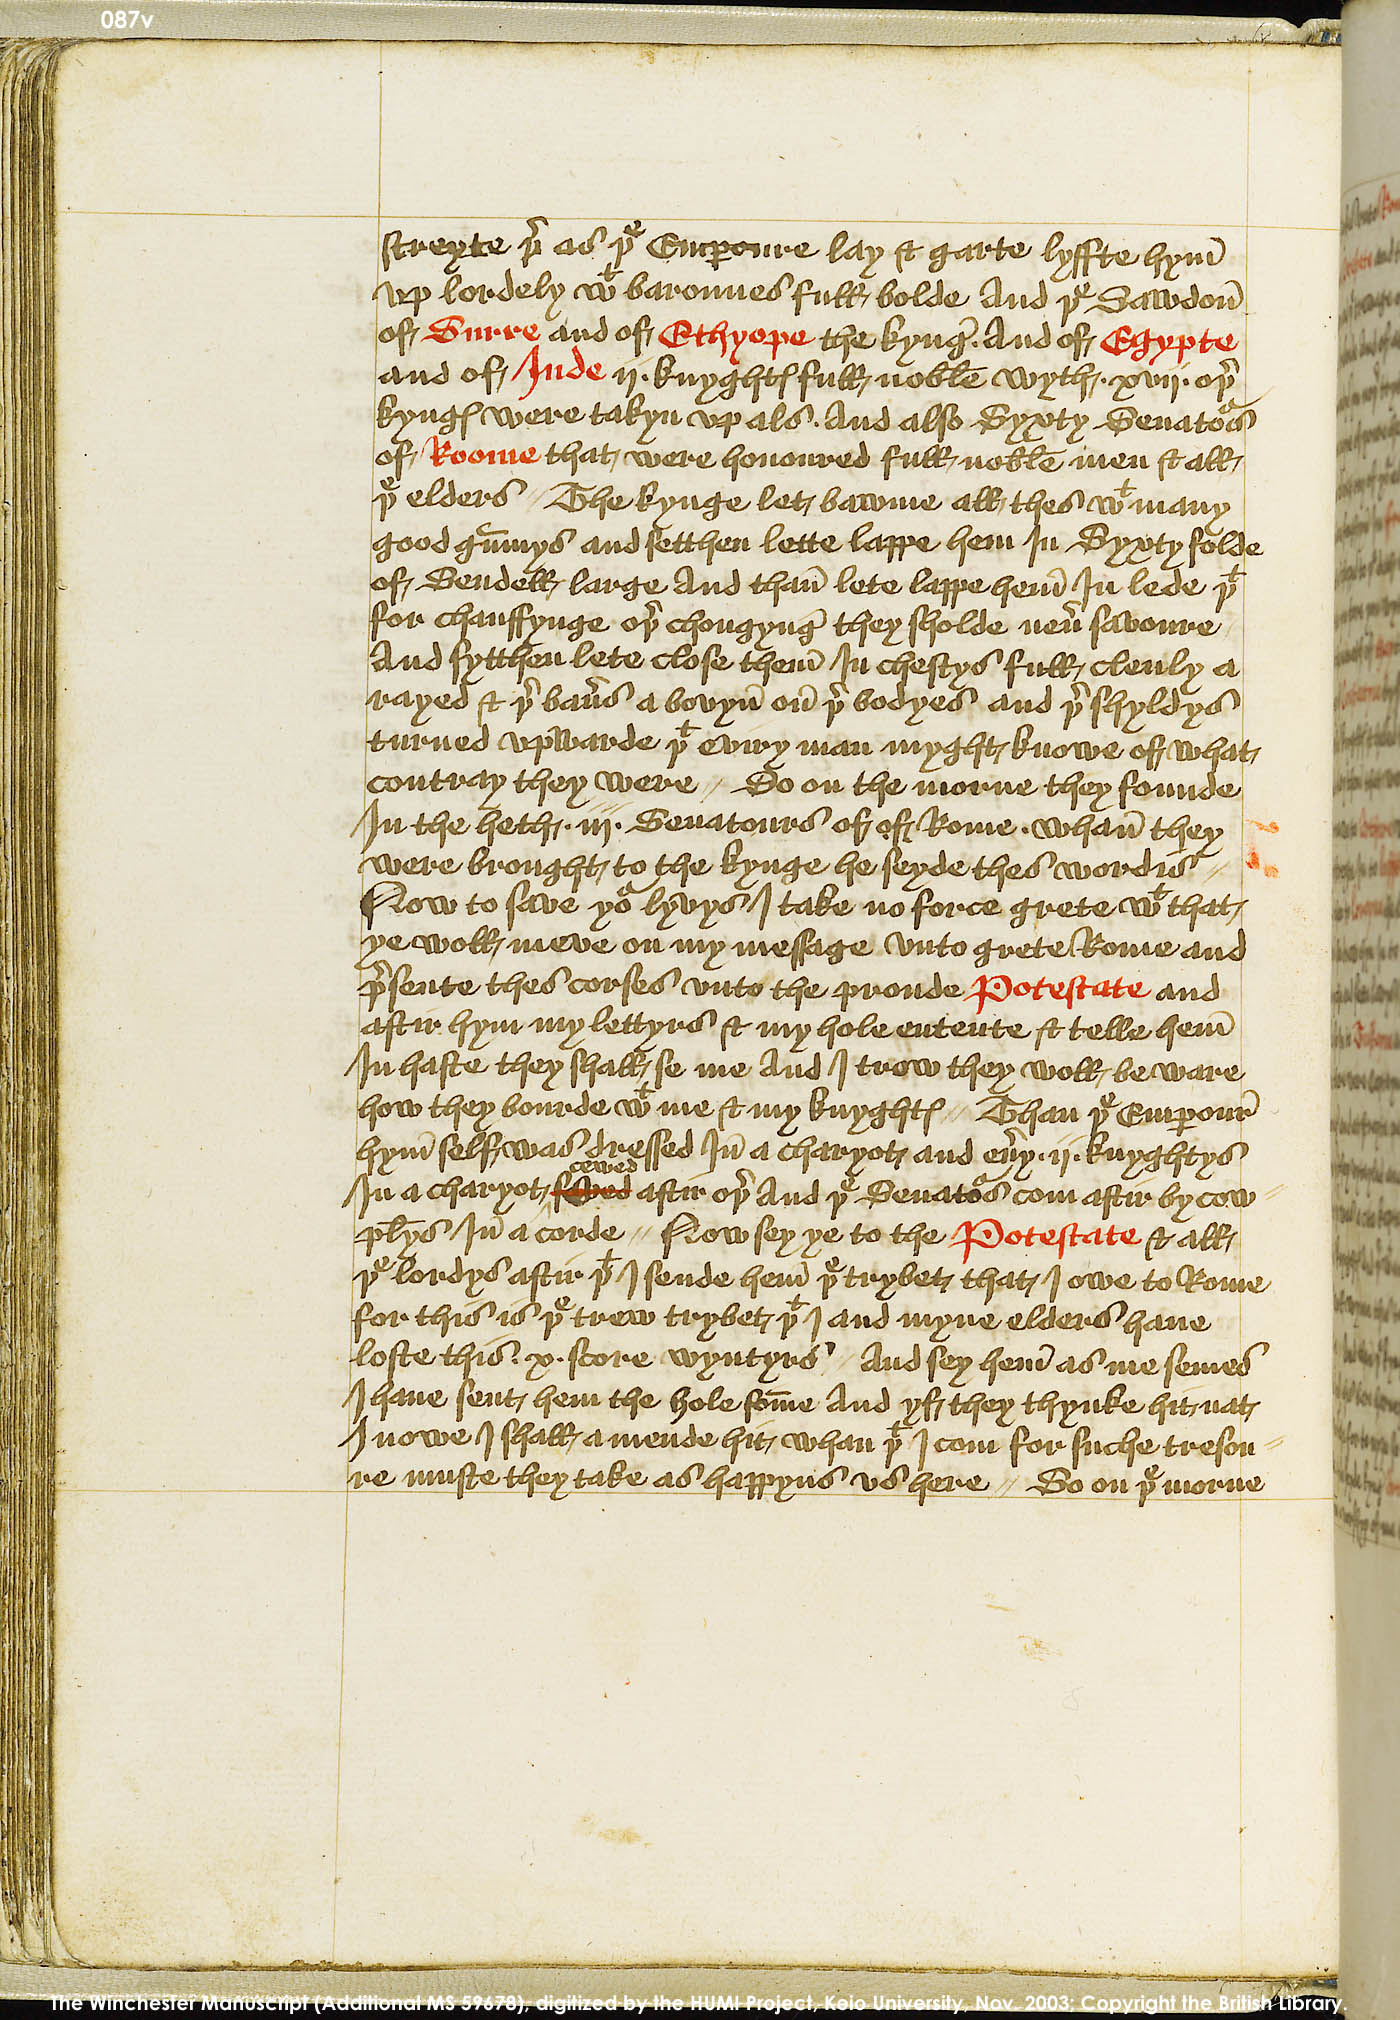 087v
streyte þʳ as þᵉ Emperoure lay & garte lyffte hym̄
vp lordely wᵗ baronnes full bolde And þᵉ Sawdoū
of Surre and of Ethyope the kyngꝭ. And of Egypte
and of Inde ij. knyghtꝭ full noble wyth. xvij. opʳ
kyngꝭ were takyn vp als. And also Syxty Senatoᵃs
of Roome that were honoured full noble men & all
þᵉ elders // The kynge let bawme all thes wᵗ many
good gūmys and setthen lette lappe hem In Syxty folde
of Sendell large And thañ lete lappe hem̄ In lede þᵗ
for chauffynge opʳ chongyngꝭ they sholde neuʳ savoure
And sytthen lete close them̄ In chestys full clenly a
rayed & þʳ baūs a bovyñ oñ þʳ bodyes and þʳ shyldys
turned vpwarde þᵗ eviry man myght knowe of what
contray they were // So on the morne they founde
In the heth. iij. Senatours of of Rome. whañ they
were brought to the kynge he seyde thes wordis //
Now to save yoᵃ lyvys I take no force grete wᵗ that
ye woll meve on my message vnto grete Rome and
pʳsente thes corses vnto the proude Potestate and
aftir hym my lettyrs & my hole entente & telle hem̄
In haste they shall se me And I trow they woll be ware
how they bourde wᵗ me & my knyghtꝭ // Than þᵉ Emperourꝭ
hym̄ self was dressed Iñ a charyot and euʳy. ij. knyghtys
cewed
In a charyot sewed aftir opʳ And þᵉ Senatoᵃs com aftir by cow=
plys Iñ a corde // Now sey ye to the Potestate & all
þᵉ lordys aftir þᵗ I sende hem̄ þᵉ trybet that I owe to Rome
for this is þᵉ trew trybet þᵗ I and myne elders haue
loste this. x. score wyntyrs // And sey hem̄ as me semes
I haue sent hem the hole som̄e And yf they thynke hit nat
I nowe I shall a mende hit whan þᵗ I com for suche tresou=
re muste they take as happyns vs here // So on þᵉ morne
The Winchester Manuscript (Additional MS 59678), digitized by the HUMI Project, Keio University, Nov. 2003; Copyright the British Library.